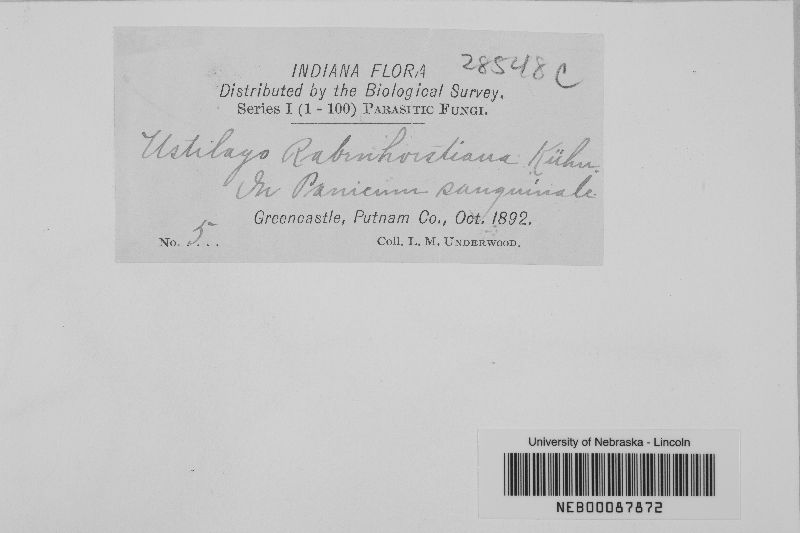 INDIANA FLORA 28548C
Distributed by the Biological Survey.
Series I (1 - 100) PARASITIC FUNGI.
Ustilago Rabenhorstiana Kühn.
On Panicum sanguinale
Greencastle, Putnam Co., Oct. 1892.
No. 5...
Coll. L. M. UNDERWOOD.
University of Nebraska - Lincoln
NEB00087872